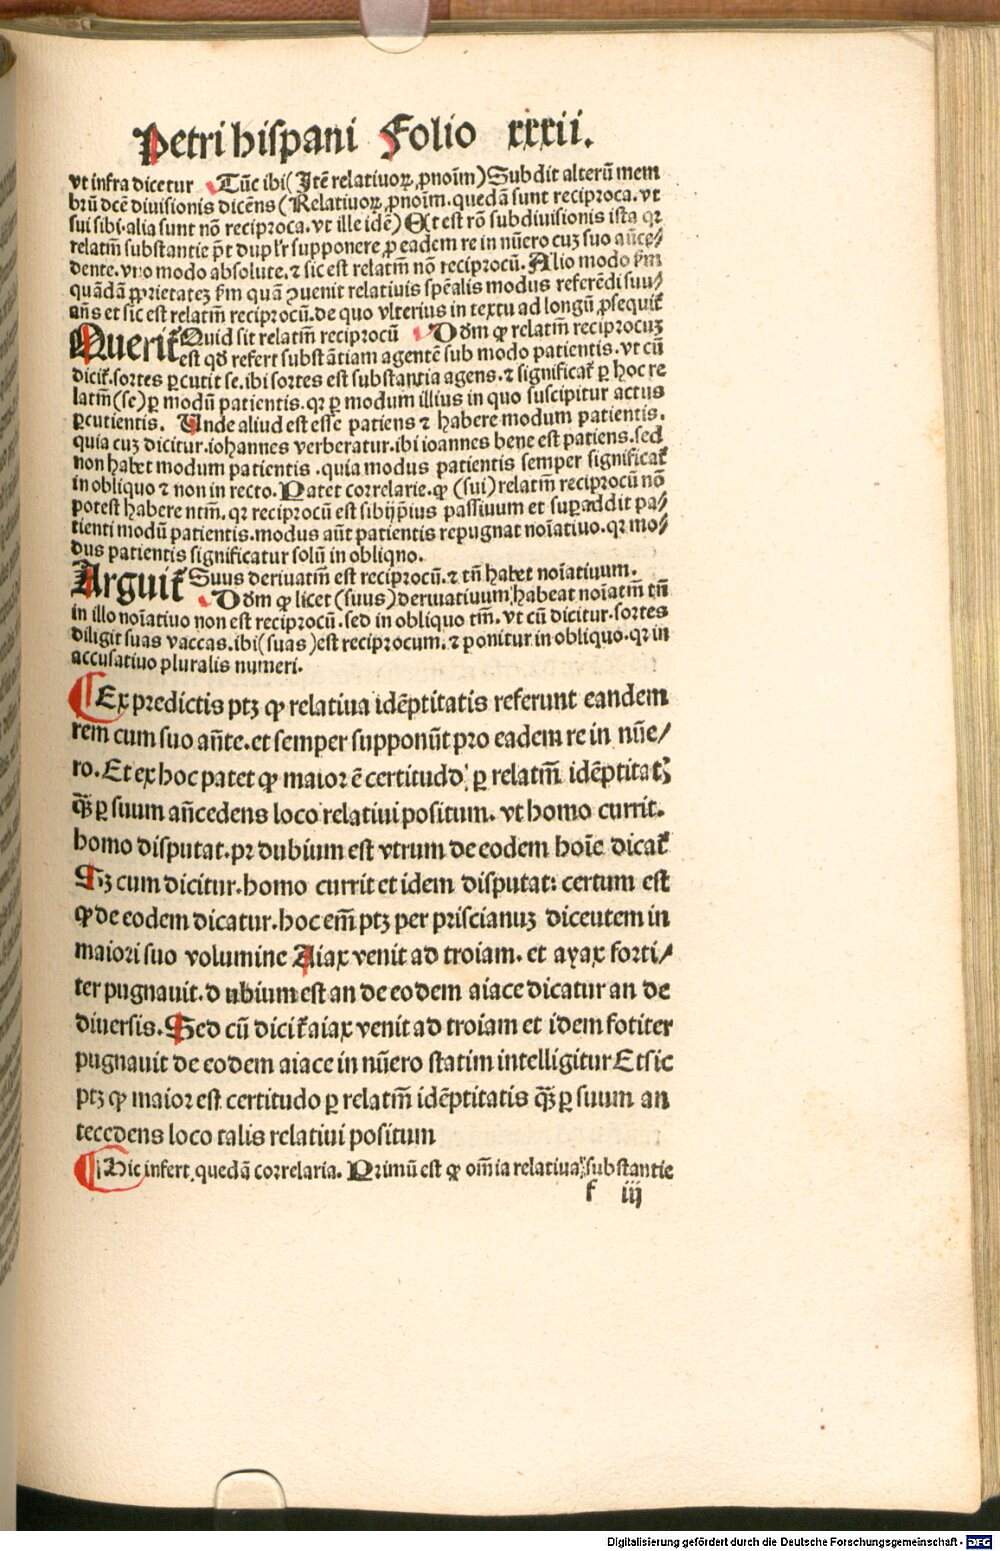 Petri hispani Folio xxxii.
vt infra dicetur Tūc ibi (Itē relatiuoꝝ ꝓnoīm) Subdit alterū mem
brū dcē diuisionis dicēns (Relatiuoꝝ ꝓnoīm. quedā sunt reciproca. vt
sui sibi. alia sunt nō reciproca. vt ille idē) Et est rō subdiuisionis ista qꝛ
relatm̄ substantie pōt duplr̄ supponere ꝓ eadem re in nūero cuꝫ suo añce⸗
dente. vno modo absolute. ⁊ sic est relatm̄ nō reciprocū. Alio modo ẜm
quādā ꝓprietateꝫ ẜm quā ꝯuenit relatiuis spēalis modus referēdi suū
añs et sic est relatm̄ reciprocū. de quo vlterius in textu ad longū ꝓsequit᷑
Querit᷑ Quid sit relatm̄ reciprocū Dōm ꝙ relatm̄ reciprocuꝫ
est qd̄ refert substātiam agentē sub modo patientis. vt cū
dicit᷑. sortes ꝑcutit se. ibi sortes est substantia agens. ⁊ significat᷑ ꝑ hoc re
latm̄ (se) ꝑ modū patientis. qꝛ ꝑ modum illius in quo suscipitur actus
ꝑcutientis. Unde aliud est esse patiens ⁊ habere modum patientis.
quia cuꝫ dicitur. iohannes verberatur. ibi ioannes bene est patiens. sed
non habet modum patientis . quia modus patientis semper significat᷑
in obliquo ⁊ non in recto. Patet correlarie. ꝙ (sui) relatm̄ reciprocū nō
potest habere ntm̄. qꝛ reciprocū est sibijp̄ius passiuum et suꝑaddit pa⸗
tienti modū patientis. modus aūt patientis repugnat noīatiuo. qꝛ mo⸗
dus patientis significatur solū in obliqno.
Arguit᷑ Suus deriuatm̄ est reciprocū. ⁊ tn̄ habet noīatiuum.
Dōm ꝙ licet (suus) deriuatiuum habeat noīatm̄ tn̄
in illo noīatiuo non est reciprocū. sed in obliquo tm̄. vt cū dicitur. sortes
diligit suas vaccas. ibi (suas) est reciprocum. ⁊ ponitur in obliquo. qꝛ in
accusatiuo pluralis numeri.
Ex predictis ptꝫ ꝙ relatiua idēptitatis referunt eandem
rem cum suo añte. et semper supponūt pro eadem re in nūe⸗
ro. Et ex hoc patet ꝙ maior ē certitudo ꝑ relatm̄ idēptitatꝫ
qꝫ̄ ꝑ suum añcedens loco relatiui positum. vt homo currit.
homo disputat. pꝛ dubium est vtrum de eodem hoīe dicat᷑
Sꝫ cum dicitur. homo currit et idem disputat: certum est
ꝙ de eodem dicatur. hoc em̄ ptꝫ per priscianuꝫ diceutem in
maiori suo volumine Aiax venit ad troiam. et ayax forti⸗
ter pugnauit. d ubium est an de eodem aiace dicatur an de
diuersis. Sed cū dicit᷑ aiax venit ad troiam et idem fotiter
pugnauit de eodem aiace in nūero statim intelligitur Et sic
ptꝫ ꝙ maior est certitudo ꝑ relatm̄ idēptitatis qꝫ̄ ꝑ suum an
tecedens loco talis relatiui positum
Hic infert quedā correlaria. Primū est ꝙ om̄ia relatiua substantie
f iij
Digitalisierung gefördert durch die Deutsche Forschungsgemeinschaft - DFG